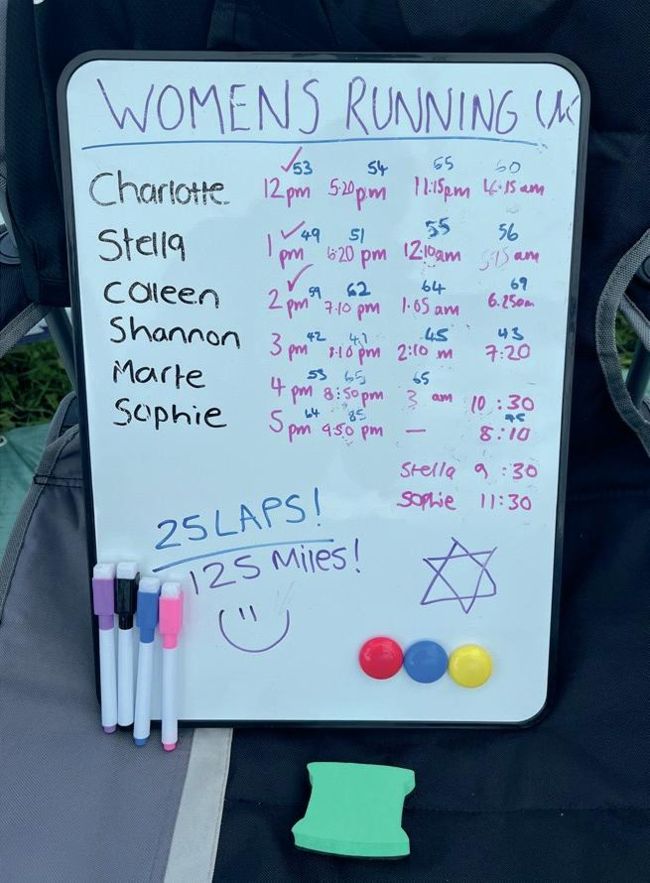 WOMENS RUNNING UK
53 54 55 50
Charlotte 12pm 5:20pm 11:15pm
49 51 55 56
Stella 1pm 6:20 pm 12:10am am
59 62 64 69
Colleen 2pm 7:10 pm 1:05 am 6.25am
42 45 43
Shannon 3pm 8:10pm 2:10 m 7:20
53 65 65
Marte 4pm 8:50pm 3 am 10:30
64 85 75
Sophie 5pm 9:50 pm — 8:10
Stella 9:30
Sophie 11:30
25 LAPS!
125 Miles!